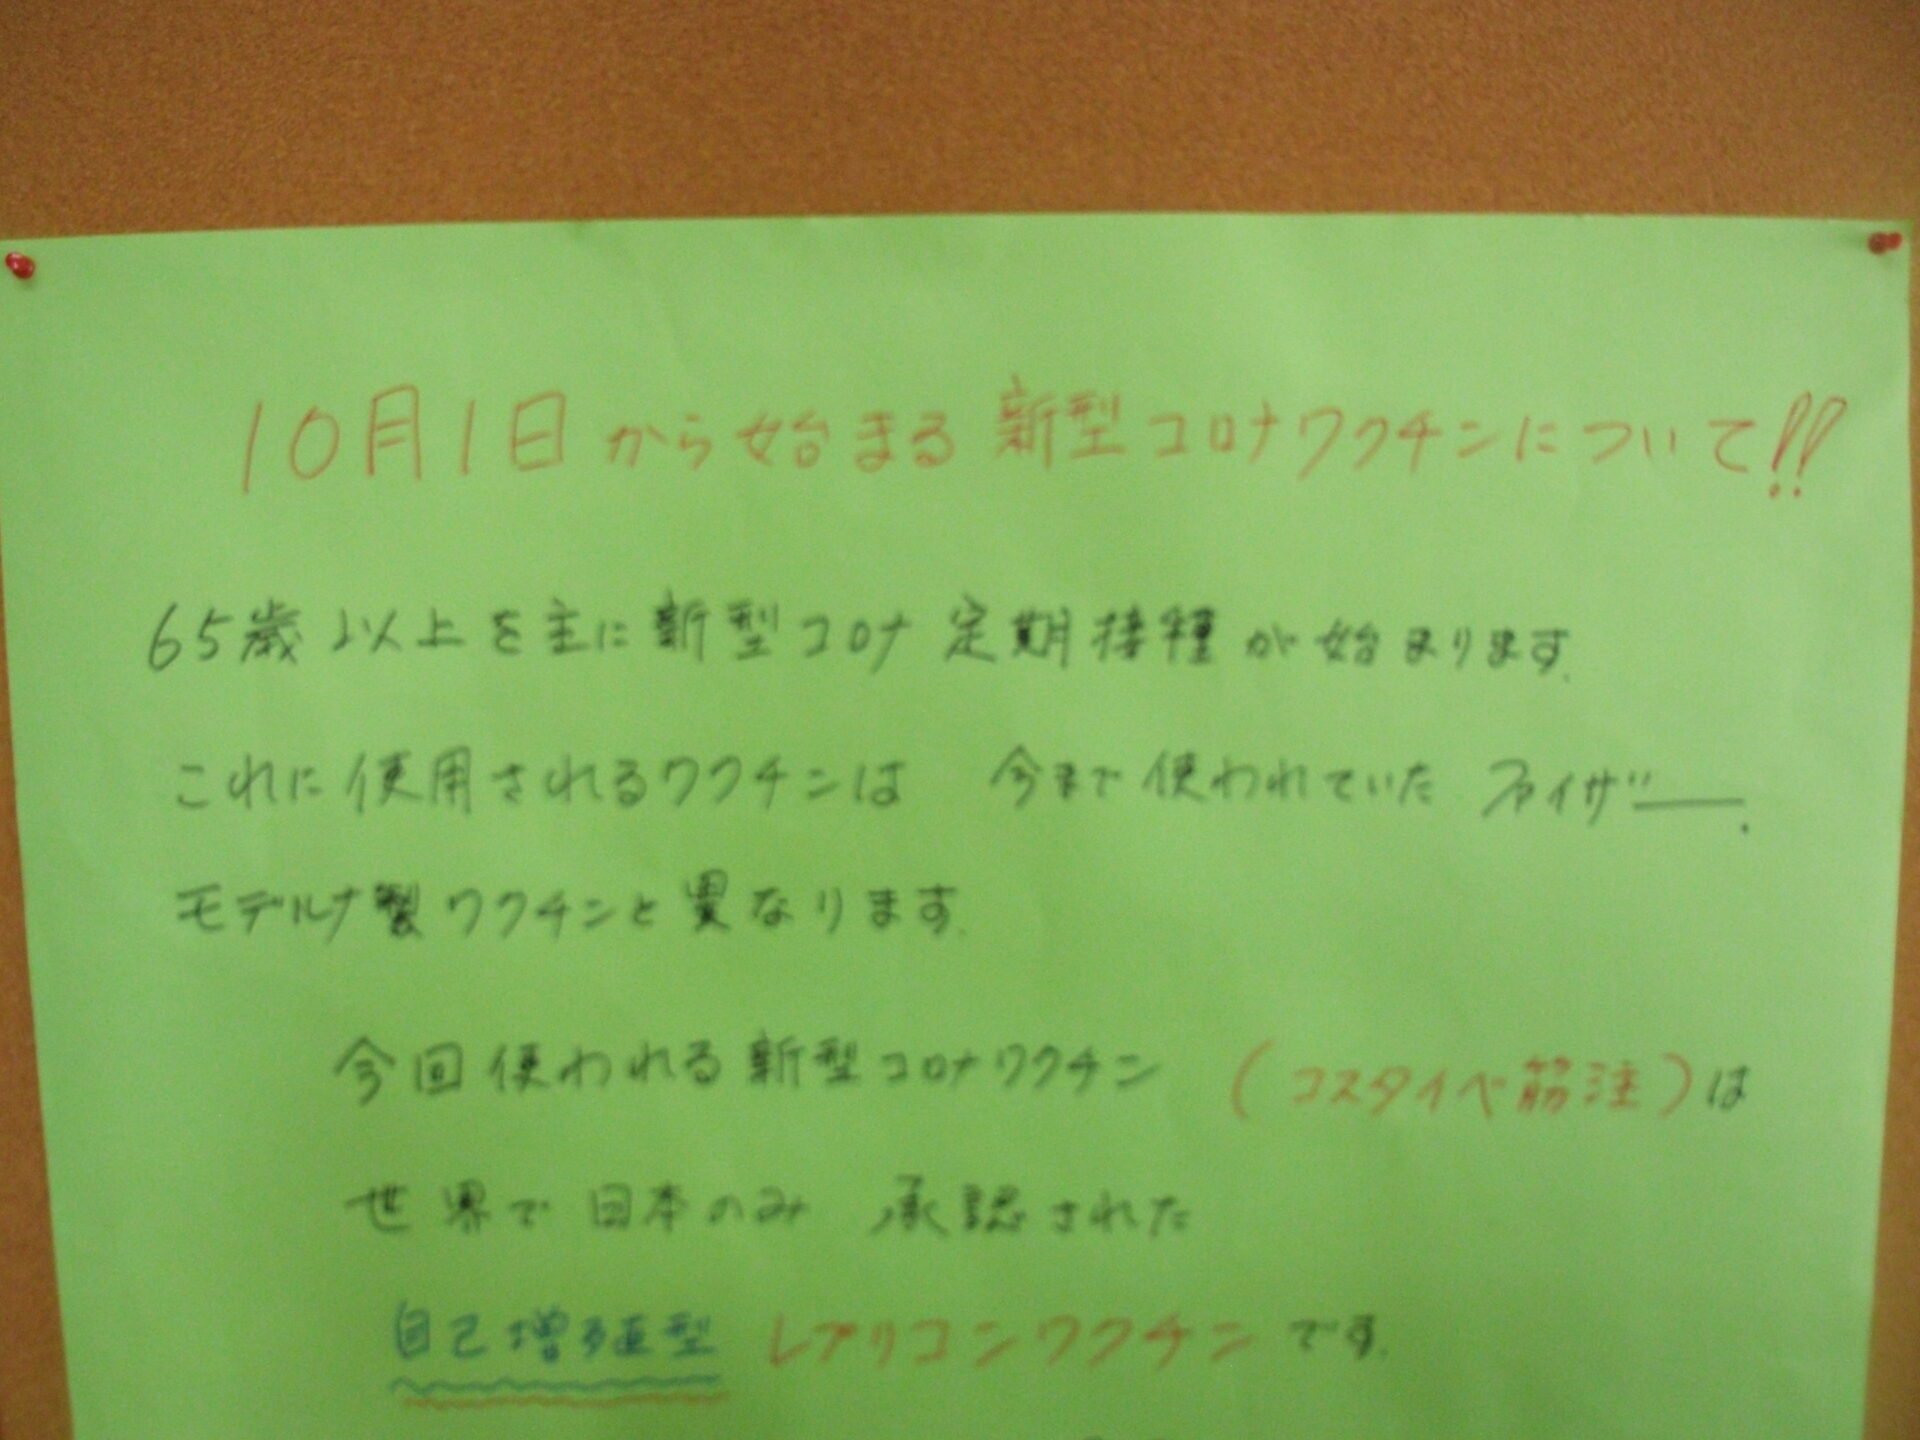 10月1日から始まる新型コロナワクチンについて!!
65歳以上を主に新型コロナ定期接種が始まります.
これに使用されるワクチンは 今まで使われていたファイザー.
モデルナ製ワクチンと異なります.
今回使われる新型コロナワクチン (コスタイベ筋注)は
世界で日本のみ 承認された
自己増殖型 レプリコンワクチンです.